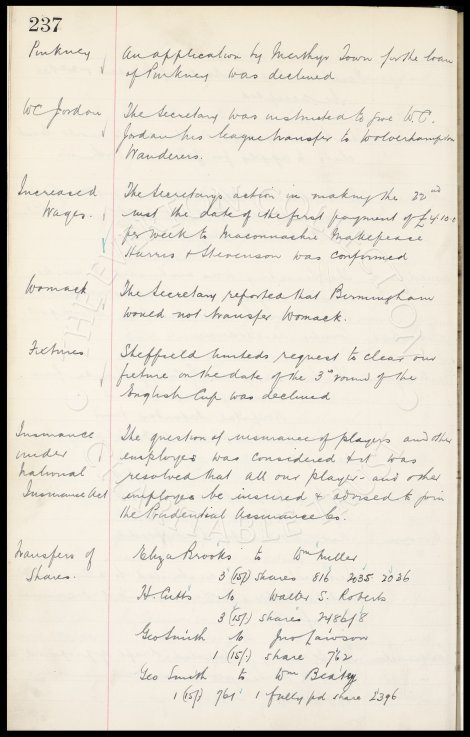 237
Pinkney
An application by Merthyr Town for the loan
of Pinkney was declined
W C Jordan
The Secretary was instructed to give W. C.
Jordan his league transfer to Wolverhampton
Wanderers.
Increased
Wages.
The Secretarys action in making the 22nd
inst the date of the first payment of £4.10.0
per week to Maconnachie Makepeace
Harris & Stevenson was confirmed
Womack
The Secretary reported that Birmingham
would not transfer Womack.
Fixtures
Sheffield Uniteds request to clear our
fixture on the date of the 3rd round of the
English Cup was declined
Insurance
under
National
Insurance Act
The question of insurance of players and other
employes was considered & it was
resolved that all our players and other
employes be insured & advised to join
the Prudential Assurance Co.
Transfers of
Shares.
Eliza Brooks to Wm Fuller
3 (15/) shares 816 2035 2036
H. Cutts to Walter S. Roberts
3 (15/) shares
Geo Smith to Jno Lawson
1 (15/) share 762
Geo Smith to Wm Beaty
1 (15/) 761 1 fully pd share 2396